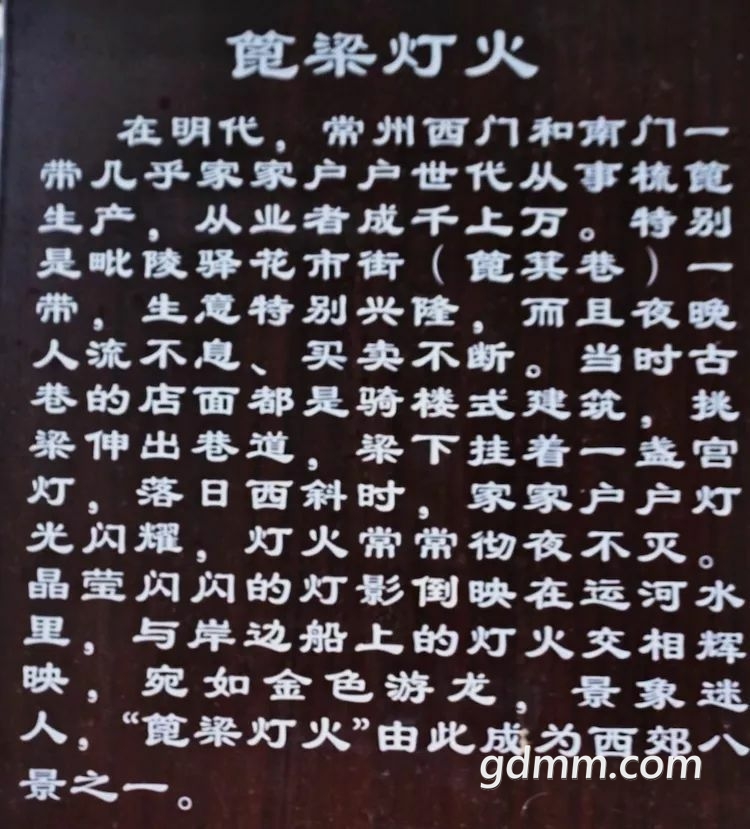 篦梁灯火
在明代，常州西门和南门一
带几乎家家户户世代从事梳篦
生产，从业者成千上万。特别
是毗陵驿花市街（篦箕巷）一
带，生意特别兴隆，而且夜晚
人流不息、买卖不断。当时古
巷的店面都是骑楼式建筑，挑
梁伸出巷道，梁下挂着一盏宫
灯，落日西斜时，家家户户灯
光闪耀，灯火常常彻夜不灭。
晶莹闪闪的灯影倒映在运河水
里，与岸边船上的灯火交相辉
映，宛如金色游龙，景象迷
人，“篦梁灯火”由此成为西郊八
景之一。
gdmm.com